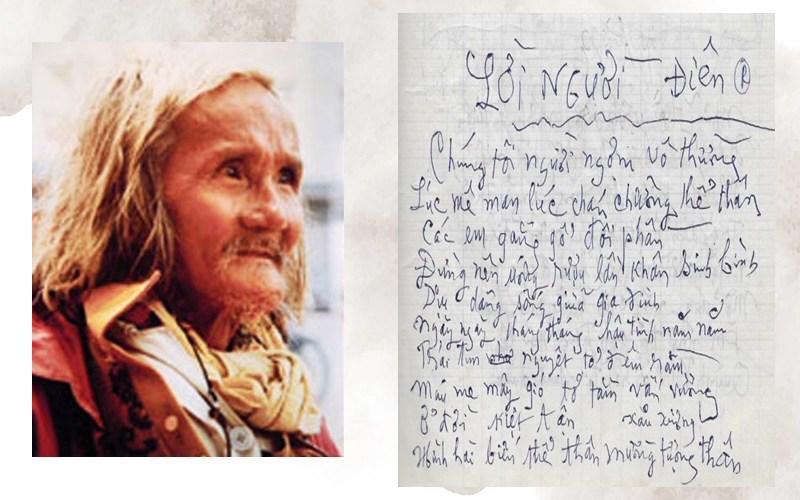 Lời Người Điên
Chúng tôi người ngợm vô thường
Lúc mê man lúc chán chường thể thân
Các em gắng gổ đôi phần
Đừng nên uống rượu lần khân
Dịu dàng sống giữa gia đình
Ngày ngày tháng tháng hậu tình năm năm
Trái tim nguyệt tỏ đêm rằm
Máu me mây gió tơ tằm vấn vương
Ở đời kiệt tận
Hình hài biến thể thân mường tượng thân